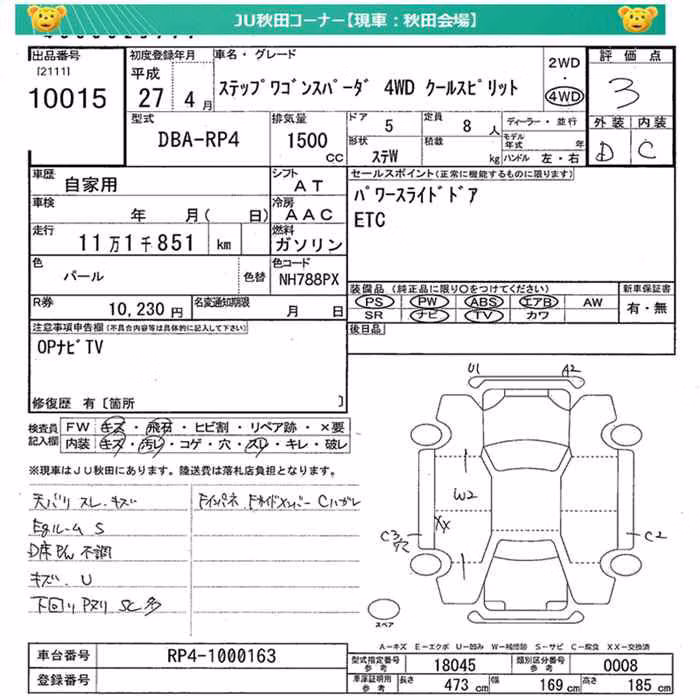 JU秋田コーナー【現車：秋田会場】
出品番号
[2111]
10015
初度登録年月
平成
27 4月
車名・グレード
ステップワゴンスパーダ 4WD クールスピリット
2WD
・
4WD
評価点
3
外装 内装
D C
型式
DBA-RP4
排気量
1500
CC
ドア
5
定員
8 人
ディーラー・並行
形状
ステW
積載
kg
モデル年式
年
ハンドル 左・右
車歴
自家用
シフト
AT
車検
年 月( 日)
冷房
AAC
走行
11万1千851 km
燃料
ガソリン
色
パール
色替
色コード
NH788PX
R券
10,230円
名変通知期限
月 日
セールスポイント(正常に機能するものに限ります)
パワースライドドア
ETC
装備品 (純正品に限り○をつけてください)
PS PW ABS エアB AW
SR ナビ TV カワ
新車保証書
有・無
後日品
注意事項申告欄(不具合内容等は具体的に記入して下さい)
OPナビTV
修復歴 有 [箇所 ]
検査員記入欄
FW キズ・飛石・ヒビ割・リペア跡・×要
内装 キズ・汚レ・コゲ・穴・スレ・キレ・破レ
※現車はJU秋田にあります。陸送費は落札店負担となります。
天バリ スレ、キズ
Egルーム S
D席PW 不調
キズ、U
下回り Pヌリ SC多
U1
A2
W2
XX
C2
スペア
A－キズ E－エクボ U－凹み W－補修跡 S－サビ C－腐食 XX－交換済
車台番号
RP4-1000163
登録番号
型式指定番号
参考
18045
類別区分番号
参考
0008
車庫証明用
参考
長さ 473cm
幅 169cm
高さ 185cm